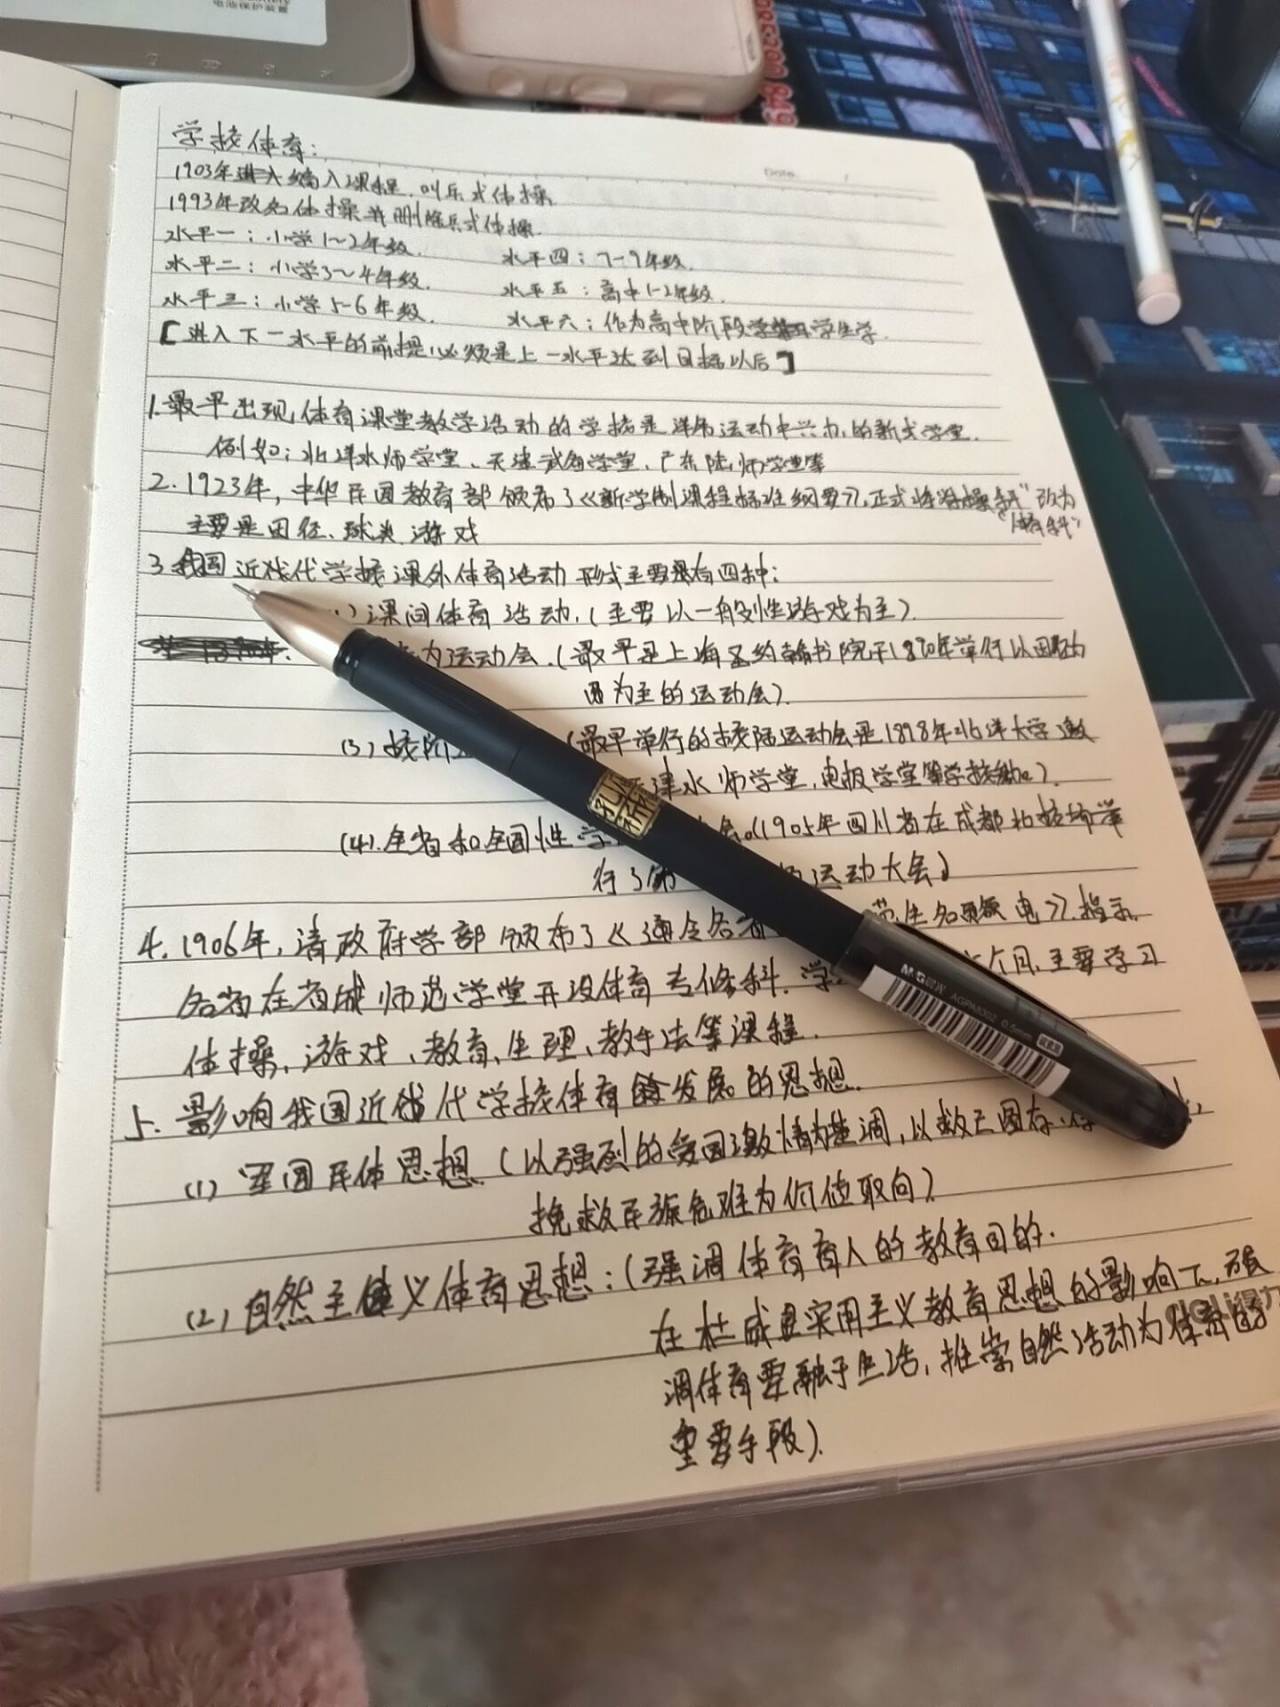 电池保护装置
学校体育:
1903年进入编入课程.叫兵式体操
1993年改名体操并删除兵式体操.
水平一:小学1~2年级.
水平四:7-9年级.
水平二:小学3~4年级.
水平五:高中1-2年级.
水平三:小学5-6年级.
水平六:作为高中阶段学生学.
【进入下一水平的前提必须是上一水平达到目标以后】
1.最早出现体育课堂教学活动的学校是洋务运动中兴办的新式学堂.
例如:北洋水师学堂、天津武备学堂、广东陆师学堂等
2.1923年,中华民国教育部颁布了《新学制课程标准纲要》.正式将"体操科"改为
"体育科"
主要是田径、球类、游戏
3.我国近代学校课外体育活动形式主要有四种:
(1)课间体育活动.(主要以一般性游戏为主).
运动会.(最早是上海圣约翰书院于1890年举行以田径为
主的运动会).
(3)校际
(最早举行的校际运动会是1898年北洋大学邀
津水师学堂,电报学堂等学校).
(4).全省和全国性学
会.(1905年四川省在成都北校场举
行了第
运动大会)
4.1906年,清政府学部颁布了《通令各省
电》.指示
各省在省城师范学堂开设体育专修科.学
个月.主要学习
体操、游戏、教育、生理、教手法等课程.
5.影响我国近代学校体育发展的思想.
(1)军国民体思想.(以强烈的爱国激情为基调,以救亡图存.
挽救民族危难为价值取向)
(2)自然主义体育思想:(强调体育育人的教育目的.
在杜威实用主义教育思想的影响下.强
调体育要融于生活,推崇自然活动为体育的
重要手段).
M&G晨光 AGPA8302 0.5mm
deli得力